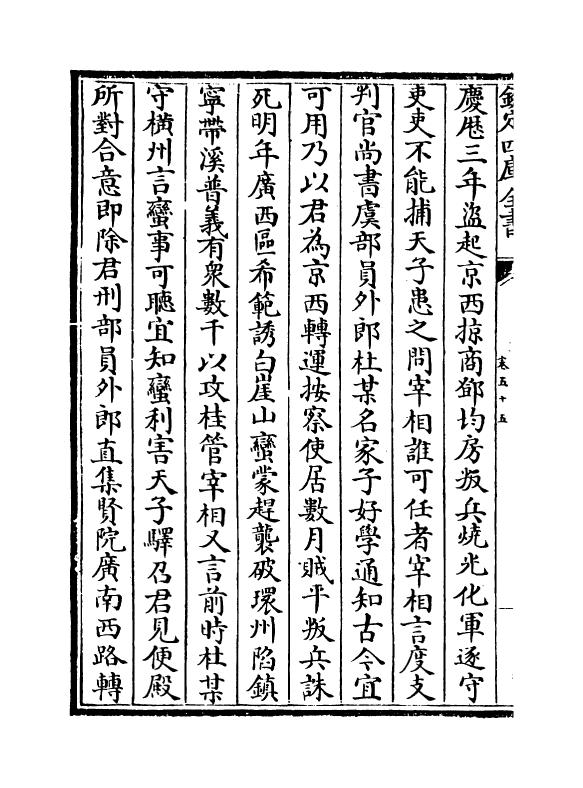 欽定四庫全書
卷五十五
慶厯三年盜起京西掠商鄧均房叛兵燒光化軍逐守
吏吏不能捕天子患之問宰相誰可任者宰相言度支
判官尚書虞部員外郎杜某名家子好學通知古今宜
可用乃以君為京西轉運按察使居數月賊平叛兵誅
死明年廣西區希範誘白崖山蠻蒙趕襲破環州陷鎮
寧帶溪普義有衆數千以攻桂管宰相又言前時杜某
守橫州言蠻事可聽宜知蠻利害天子驛召君見便殿
所對合意即除君刑部員外郎直集賢院廣南西路轉